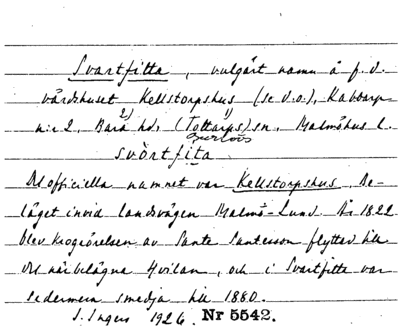 Svartfitta, vulgärt namn å f.d.
värdshuset Kellstorpshus (se d.o.), Kabbarp
n:r 2, Bara hd, (Tottarps) sn, Malmöhus l.
2) 1)
Burlövs
svòrtfita
Det officiella namnet var Kellstorpshus. Be-
läget invid landsvägen Malmö-Lund. År 1822
blev krogrörelsen av Sante Santesson flyttad till
det närbelägna Hvilan, och i Svartfitta var
sedermera smedja till 1880.
S. Ingers 1926. Nr 5542.